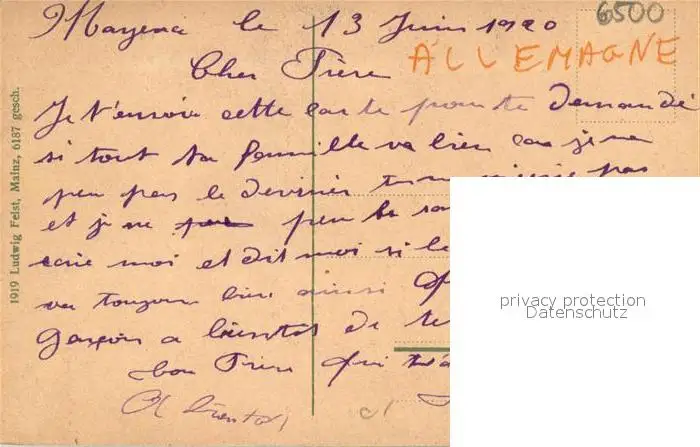 6500
Mayence le 13 Juin 1920
ALLEMAGNE
Cher Frère
Je t'envoie cette carte pour te demandé
si tout ta famille va bien car je ne
peu pas le deviner tu ne pas
et je ne peu le
moi et dit moi si le
va toujours bien ainsi
garçon a bientot de te
bon Frère qui t'
A bientot
1919 Ludwig Feist, Mainz, 6187 gesch.
privacy protection
Datenschutz